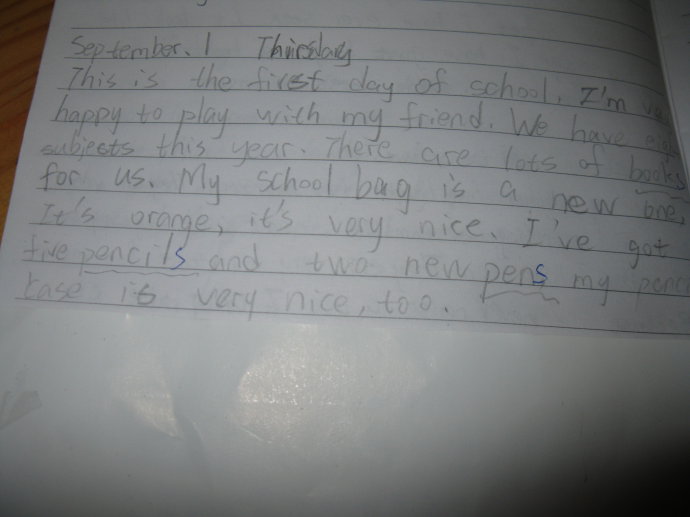 September. 1 Thursday
This is the first day of school. I'm
happy to play with my friend. We have
subjects this year. There are lots of books
for us. My school bag is a new one,
It's orange, it's very nice. I've got
five pencils and two new pens my
case is very nice, too.